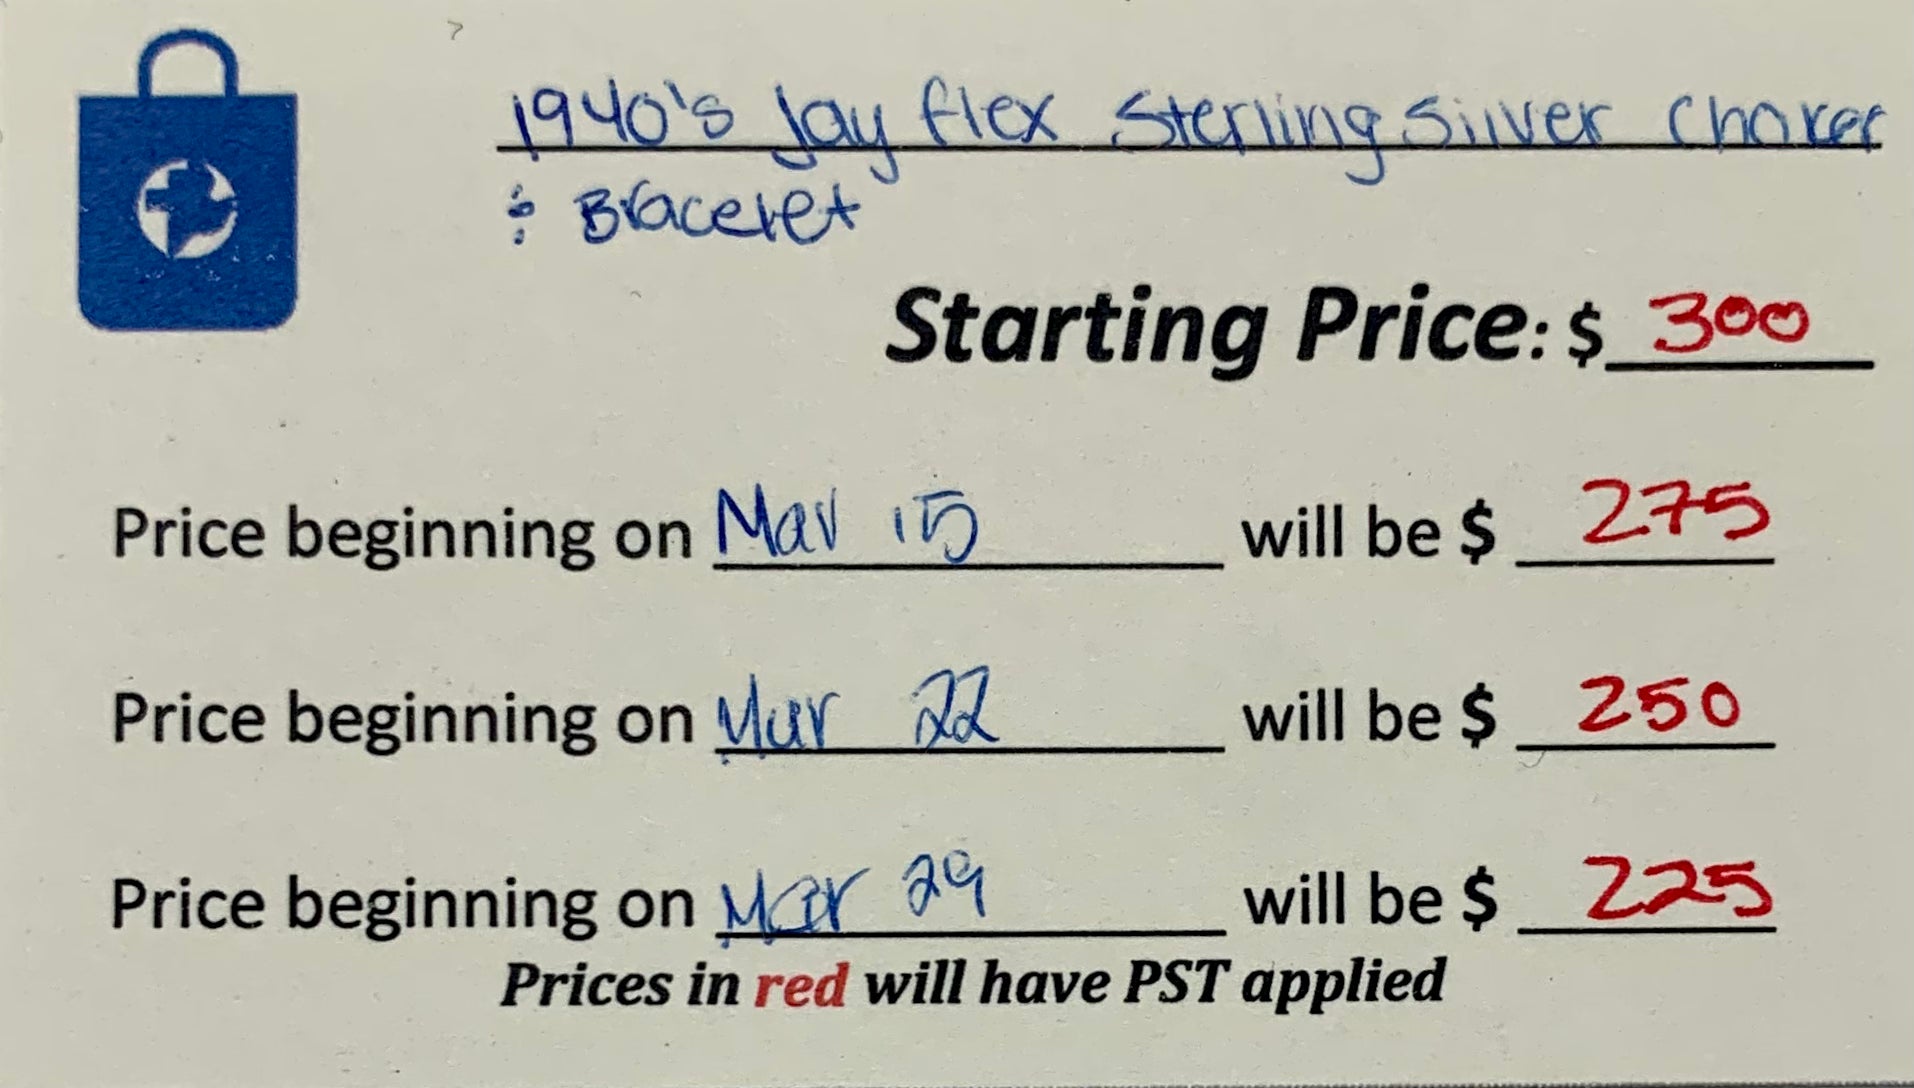 1940's Jay flex Sterling Silver Choker
& Bracelet
Starting Price: $ 300
Price beginning on Mar 15 will be $ 275
Price beginning on Mar 22 will be $ 250
Price beginning on Mar 29 will be $ 225
Prices in red will have PST applied